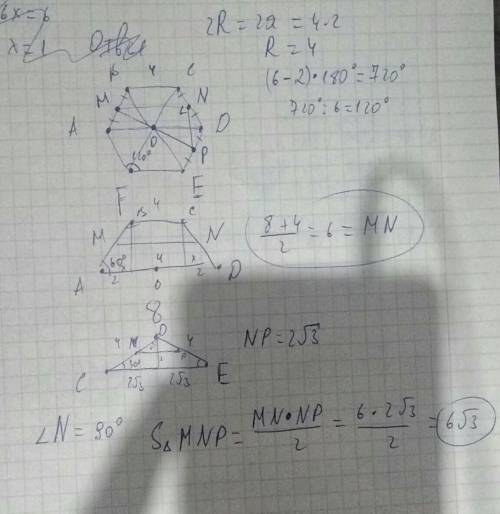 6x = 6
x = 1
2R = 2a = 4·2
R = 4
(6-2)·180° = 720°
720° : 6 = 120°
B 4 C
M N
A D
O
P
120°
F E
B 4 C
M N
60°
A 2 4 2 D
O
8
(8+4)/2 = 6 = MN
D
4 4
N P
30°
C 2√3 2√3 E
NP = 2√3
∠N = 90°
S△MNP = (MN·NP)/2 = (6·2√3)/2 = 6√3